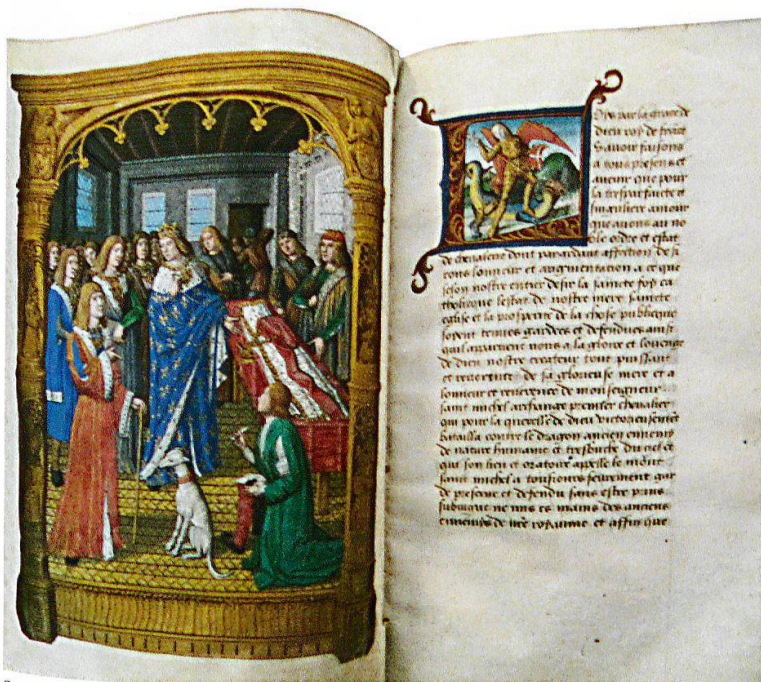 Loys par la grace de
dieu roy de france
Savoir faisons
a tous presens et
avenir que pour
la tresparfaicte et
singuliere amour
que avons au no
ble ordre et estat
de chevalerie dont par ardant affection de si
rons lonneur et augmentation a ce que
selon nostre entier desir la saincte foy ca
tholicque lestat de nostre mere saincte
eglise et la prosperite de la chose publicque
soyent tenues gardees et defendues ainsi
quil appartient nous a la gloire et louenge
de dieu nostre createur tout puissant
et reverence de sa glorieuse mere et a
lonneur et reverence de monseigneur
saint michel archange premier chevalier
qui pour la querelle de dieu victorieusement
batailla contre le dragon ancien ennemy
de nature humaine et tresbucha du ciel et
qui son lieu et oratoire appelle le mont
saint michel a tousiours seurement gar
de preserve et defendu sans estre prins
subiugue ne mis es mains des anciens
ennemis de nre royaume et affin que